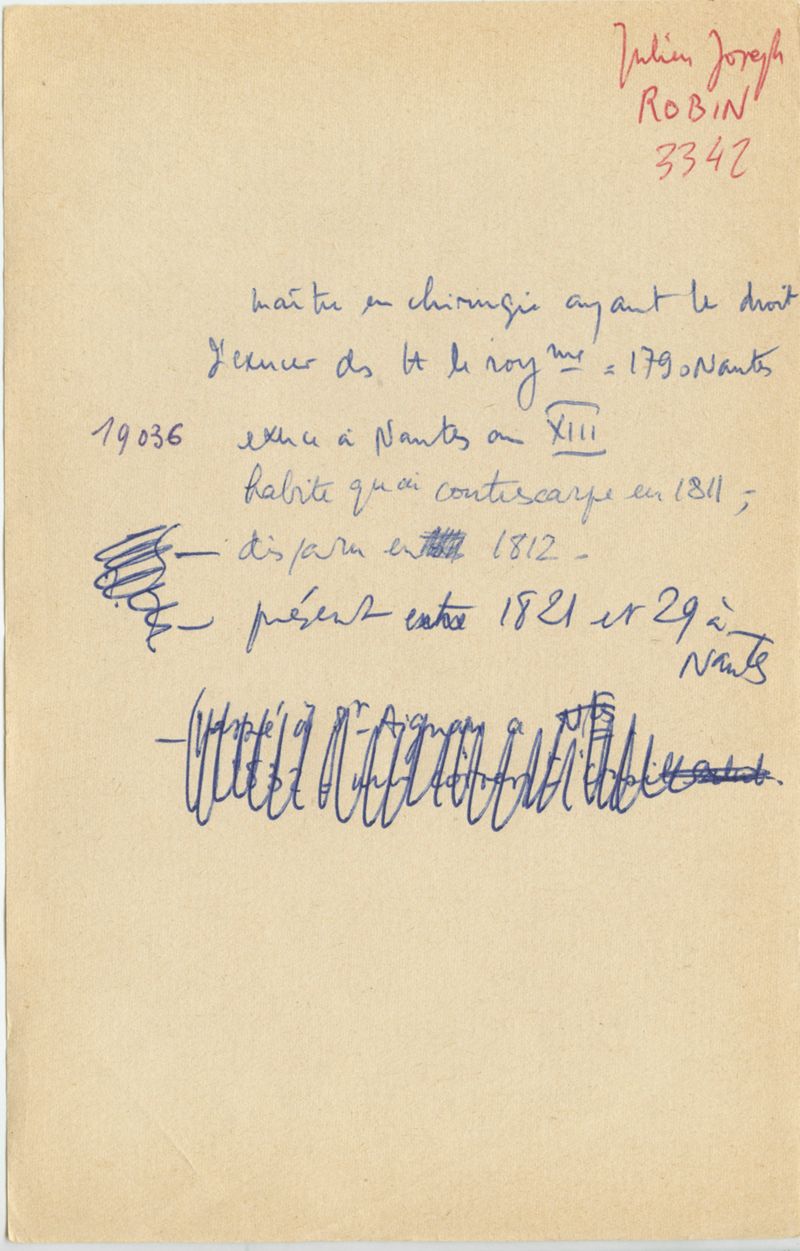 Julien Joseph
ROBIN
3342
maître en chirurgie ayant le droit
d'exercer ds tt le roy me = 1790 Nantes
19036 exerce à Nantes an XIII
habite quai contrescarpe en 1811 ;
— disparu en 1812 -
— présent entre 1821 et 29 à
Nantes
— St-Aignan a Ntes